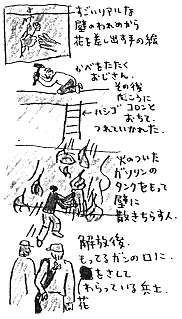 すごいリアルな
壁のわれめから
花を差し出す手の絵
かべをたたく
おじさん.
その後
むこうに
←ハシゴ コロンと
おちて.
つれていかれた.
火のついた
ガソリンの
タンクをもって
壁に
散きちらす人.
解放後.
もってるガンの口に.
をさして
わらっている兵士.
花